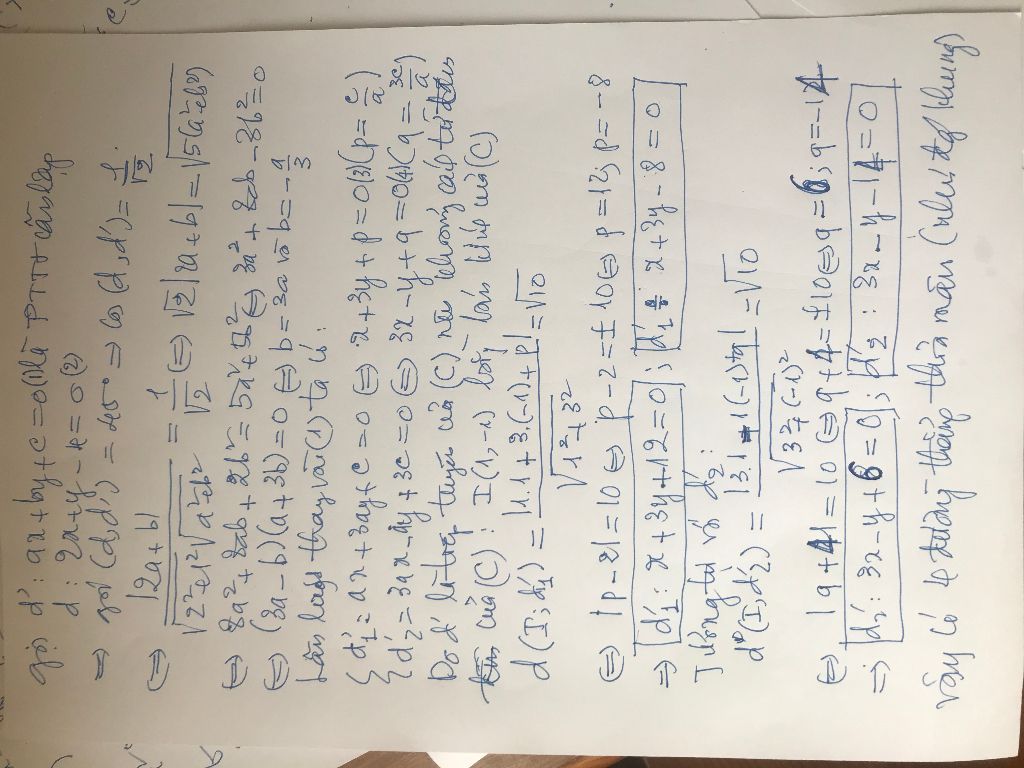 gọi d' : ax + by + c = 0 (1) là PTTT cần lập
d : 2x + y - 4 = 0 (2)
⇒ góc (d, d') = 45° ⇒ cos (d, d') = 1/√2.
⇔ |2a + b| / √2² + 1² √a² + b² = 1/√2 ⇔ √2 |2a + b| = √5(a² + b²)
⇔ 8a² + 8ab + 2b² = 5a² + 5b² ⇔ 3a² + 8ab - 3b² = 0
⇔ (3a - b)(a + 3b) = 0 ⇔ b = 3a và b = - a/3
Lần lượt thay vào (1) ta có:
{ d'1 = ax + 3ay + c = 0 ⇔ x + 3y + p = 0 (3) (p = c/a)
{ d'2 = 3ax - ay + 3c = 0 ⇔ 3x - y + q = 0 (4) (q = 3c/a)
Do d' là tiếp tuyến của (C) nên khoảng cách từ
của (C) : I(1, -1) bằng bán kính của (C)
d(I; d'1) = |1.1 + 3.(-1) + p| / √1² + 3² = √10
⇔ |p - 2| = 10 ⇔ p - 2 = ± 10 ⇔ p = 12; p = -8
⇒ d'1 : x + 3y + 12 = 0 ; d'1 : x + 3y - 8 = 0
Tương tự với d'2 :
d(I; d'2) = |3.1 - 1(-1) + q| / √3² + (-1)² = √10
⇔ |q + 4| = 10 ⇔ q + 4 = ± 10 ⇔ q = 6 ; q = -14
⇒ d'2 : 3x - y + 6 = 0 ; d'2 : 3x - y - 14 = 0
Vậy có 4 đường thẳng thỏa mãn (như đã khung)